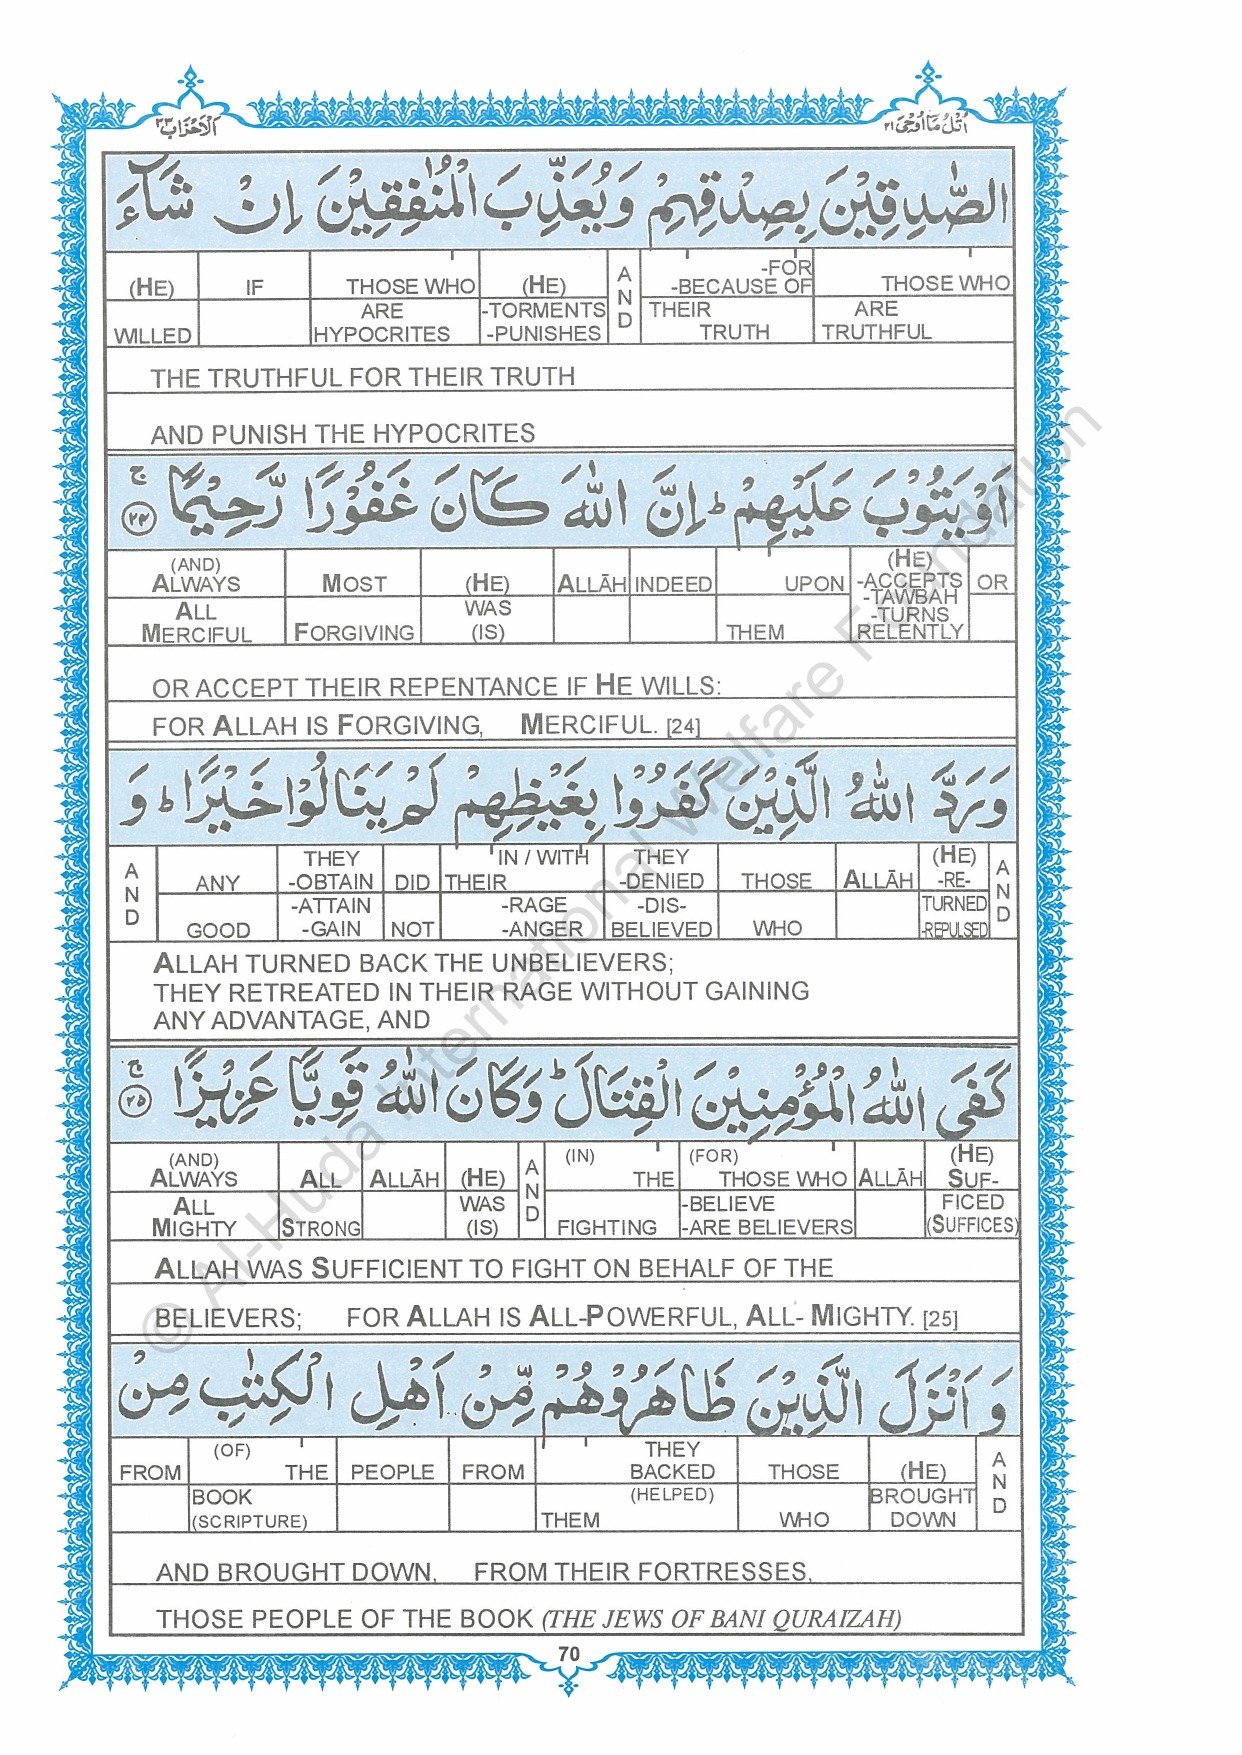 اَلْاَحْزَاب ٣٣
اُتْلُ مَآ اُوْحِيَ ٢١
الصّٰدِقِيْنَ بِصِدْقِهِمْ وَيُعَذِّبَ الْمُنٰفِقِيْنَ اِنْ شَآءَ
(HE) IF THOSE WHO (HE) AND -FOR -BECAUSE OF THOSE WHO
WILLED ARE HYPOCRITES -TORMENTS -PUNISHES THEIR TRUTH ARE TRUTHFUL
THE TRUTHFUL FOR THEIR TRUTH
AND PUNISH THE HYPOCRITES
اَوْ يَتُوْبَ عَلَيْهِمْ ؕ اِنَّ اللّٰهَ كَانَ غَفُوْرًا رَّحِيْمًا ۚ ٢٤
(AND) ALWAYS MOST (HE) ALLĀH INDEED UPON (HE) -ACCEPTS -TAWBAH OR
ALL MERCIFUL FORGIVING WAS (IS) THEM -TURNS RELENTLY
OR ACCEPT THEIR REPENTANCE IF HE WILLS:
FOR ALLAH IS FORGIVING, MERCIFUL. [24]
وَرَدَّ اللّٰهُ الَّذِيْنَ كَفَرُوْا بِغَيْظِهِمْ لَمْ يَنَالُوْا خَيْرًا ؕ وَ
AND ANY THEY -OBTAIN DID IN / WITH THEIR THEY -DENIED THOSE ALLĀH (HE) -RE- AND
GOOD -ATTAIN -GAIN NOT -RAGE -ANGER -DIS- BELIEVED WHO TURNED -REPULSED
ALLAH TURNED BACK THE UNBELIEVERS;
THEY RETREATED IN THEIR RAGE WITHOUT GAINING
ANY ADVANTAGE, AND
كَفَى اللّٰهُ الْمُؤْمِنِيْنَ الْقِتَالَ ؕ وَكَانَ اللّٰهُ قَوِيًّا عَزِيْزًا ۚ ٢٥
(AND) ALWAYS ALL ALLĀH (HE) AND (IN) THE (FOR) THOSE WHO ALLĀH (HE) SUF-
ALL MIGHTY STRONG WAS (IS) FIGHTING -BELIEVE -ARE BELIEVERS FICED (SUFFICES)
ALLAH WAS SUFFICIENT TO FIGHT ON BEHALF OF THE
BELIEVERS; FOR ALLAH IS ALL-POWERFUL, ALL- MIGHTY. [25]
وَ اَنْزَلَ الَّذِيْنَ ظَاهَرُوْهُمْ مِّنْ اَهْلِ الْكِتٰبِ مِنْ
FROM (OF) THE PEOPLE FROM THEY BACKED THOSE (HE) AND
BOOK (SCRIPTURE) (HELPED) THEM WHO BROUGHT DOWN
AND BROUGHT DOWN, FROM THEIR FORTRESSES,
THOSE PEOPLE OF THE BOOK (THE JEWS OF BANI QURAIZAH)
70
© Al-Huda International Welfare Foundation